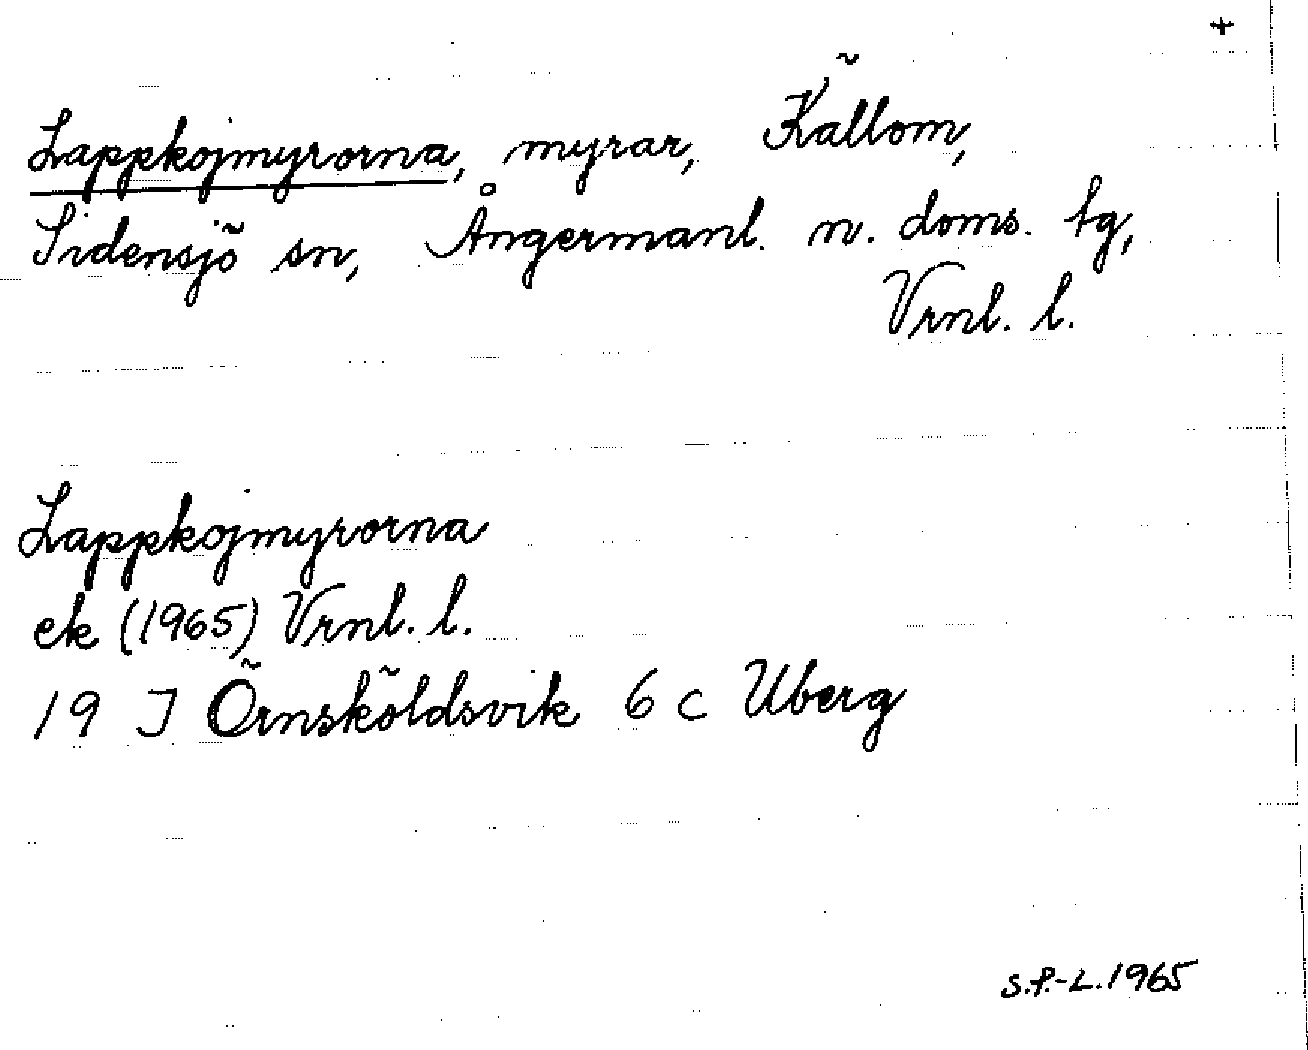 +
Lappkojmyrorna, myrar, Källom,
Sidensjö sn, Ångermanl. n. doms. tg,
Vrnl. l.
Lappkojmyrorna
ek (1965) Vrnl. l.
19 J Örnsköldsvik 6 c Uberg
S.P.-L. 1965